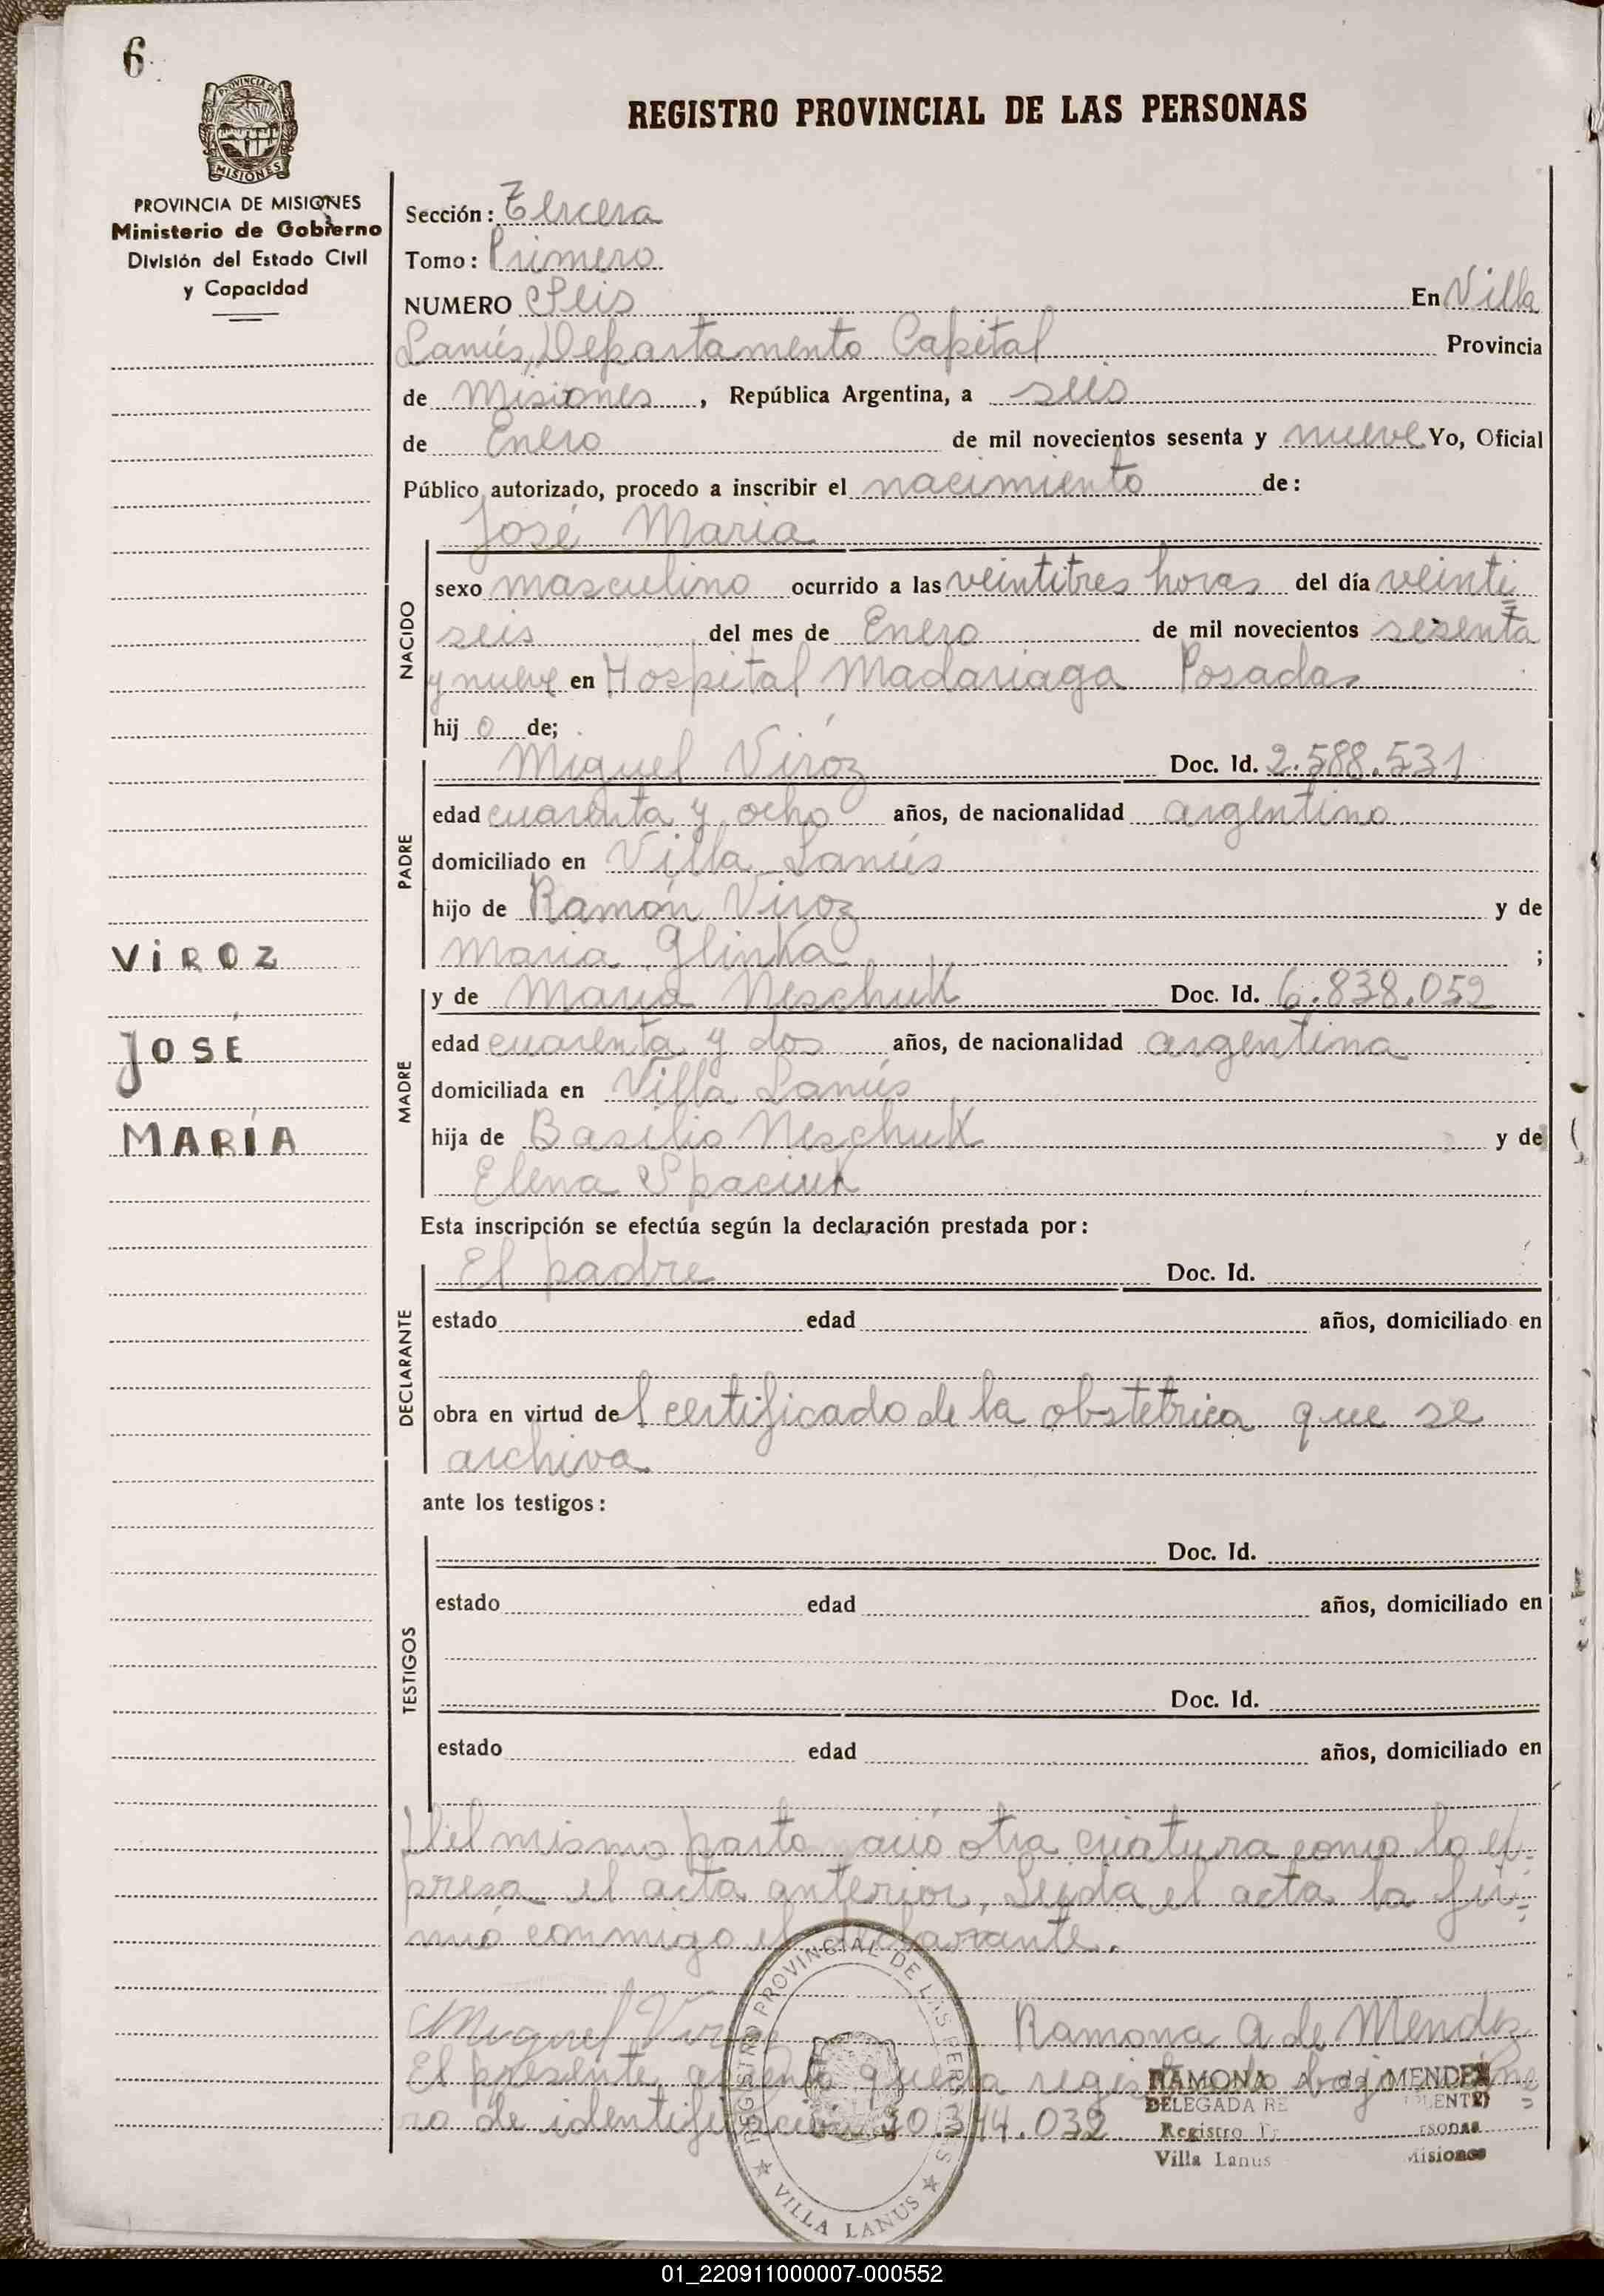 6
REGISTRO PROVINCIAL DE LAS PERSONAS
PROVINCIA DE
MISIONES
PROVINCIA DE MISIONES
Ministerio de Gobierno
División del Estado Civil
y Capacidad
Sección: Tercera
Tomo: Primero
NUMERO Seis En Villa
Lanús, Departamento Capital Provincia
de Misiones, República Argentina, a seis
de Enero de mil novecientos sesenta y nueve Yo, Oficial
Público autorizado, procedo a inscribir el nacimiento de:
José Maria
NACIDO
sexo masculino ocurrido a las veintitres horas del día veinti=
seis del mes de Enero de mil novecientos sesenta
y nueve en Hospital Madariaga Posadas
hijo de;
Miguel Viróz Doc. Id. 2.588.531
PADRE
edad cuarenta y ocho años, de nacionalidad argentino
domiciliado en Villa Lanús
hijo de Ramón Viroz y de
Maria Glinka ;
VIROZ
JOSÉ
MARÍA
y de Maria Neschuk Doc. Id. 6.838.059
MADRE
edad cuarenta y dos años, de nacionalidad argentina
domiciliada en Villa Lanús
hija de Basilio Neschuk y de
Elena Spaciuk
Esta inscripción se efectúa según la declaración prestada por:
El padre Doc. Id.
DECLARANTE
estado edad años, domiciliado en
obra en virtud del certificado de la obstétrica que se
archiva
ante los testigos:
Doc. Id.
TESTIGOS
estado edad años, domiciliado en
Doc. Id.
estado edad años, domiciliado en
Del mismo parto nació otra criatura como lo ex=
presa el acta anterior, Leída el acta la fir=
mó conmigo el declarante.
Miguel Viroz Ramona A de Mendez
El presente asiento queda registrado bajo
ro de identificación 20.344.032
REGISTRO PROVINCIAL DE LAS PERSONAS
VILLA LANUS
RAMONA A. de MENDEZ
DELEGADA
Registro
Villa Lanus Misiones
01_220911000007-000552